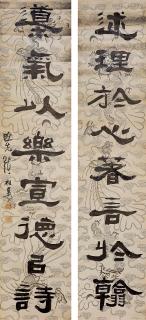 述理於心著言於翰
導氣以樂宣德以詩